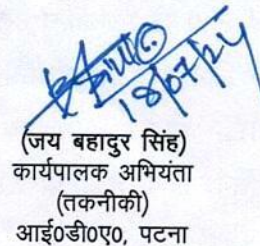 18/07/24
(जय बहादुर सिंह)
कार्यपालक अभियंता
(तकनीकी)
आई0डी0ए0, पटना